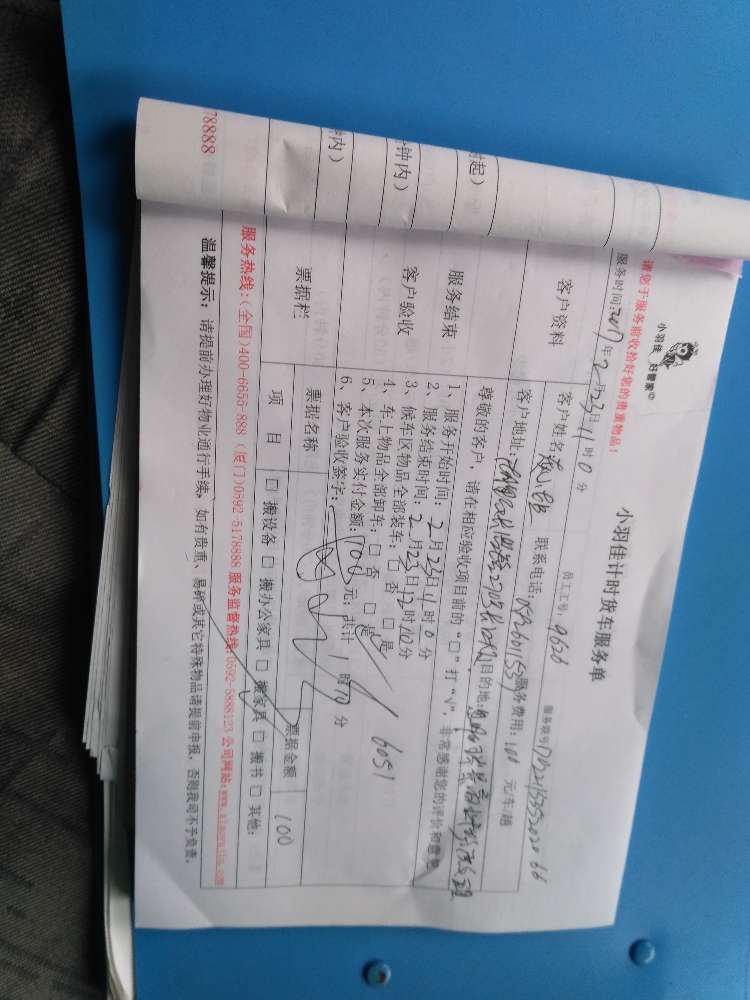 小羽佳 好管家
小羽佳计时货车服务单
请您于服务前收拾好您的贵重物品！
员工工号：9626
服务时间：2017年2月23日11时0分
客户资料
客户姓名 联系电话： 服务费用：100 元/车/趟
客户地址： 目的地：
尊敬的客户，请在相应验收项目前的“口”打“√”，非常感谢您的评价和意见
时起）
服务结束
1、服务开始时间：2月23日11时0分
2、服务结束时间：2月23日12时10分
钟内）
客户验收
3、候车区物品全部装车：□否 □是
4、车上物品全部卸车：□否 □是
5、本次服务实付金额：100元；共计1时10分
6、客户验收签字： 6051
钟内）
票据栏
票据名称 票据金额
项目 □搬设备 □搬办公家具 □搬家具 □搬书 □其他： 100
78888
服务热线：（全国）400-6655-889 （厦门）0592-5178888 服务监督热线：0592-5888123 公司网站：
温馨提示：请提前办理好物业通行手续，如有贵重、易碎或其它特殊物品请提前申报，否则我司不予负责。